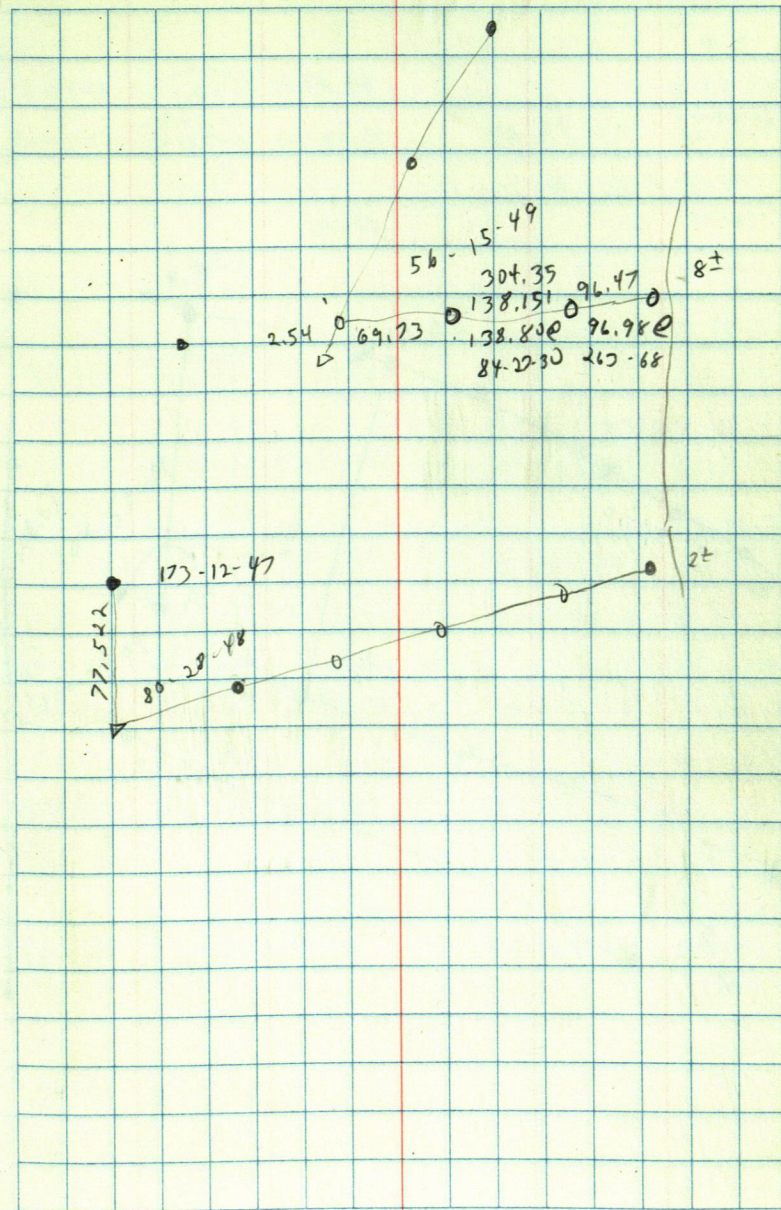 56-15-49
304.35
96.47
8±
138.151
2.54
69.73
138.80e
96.98e
84-27-30
263-68
2±
173-12-47
77.522
80-28-48